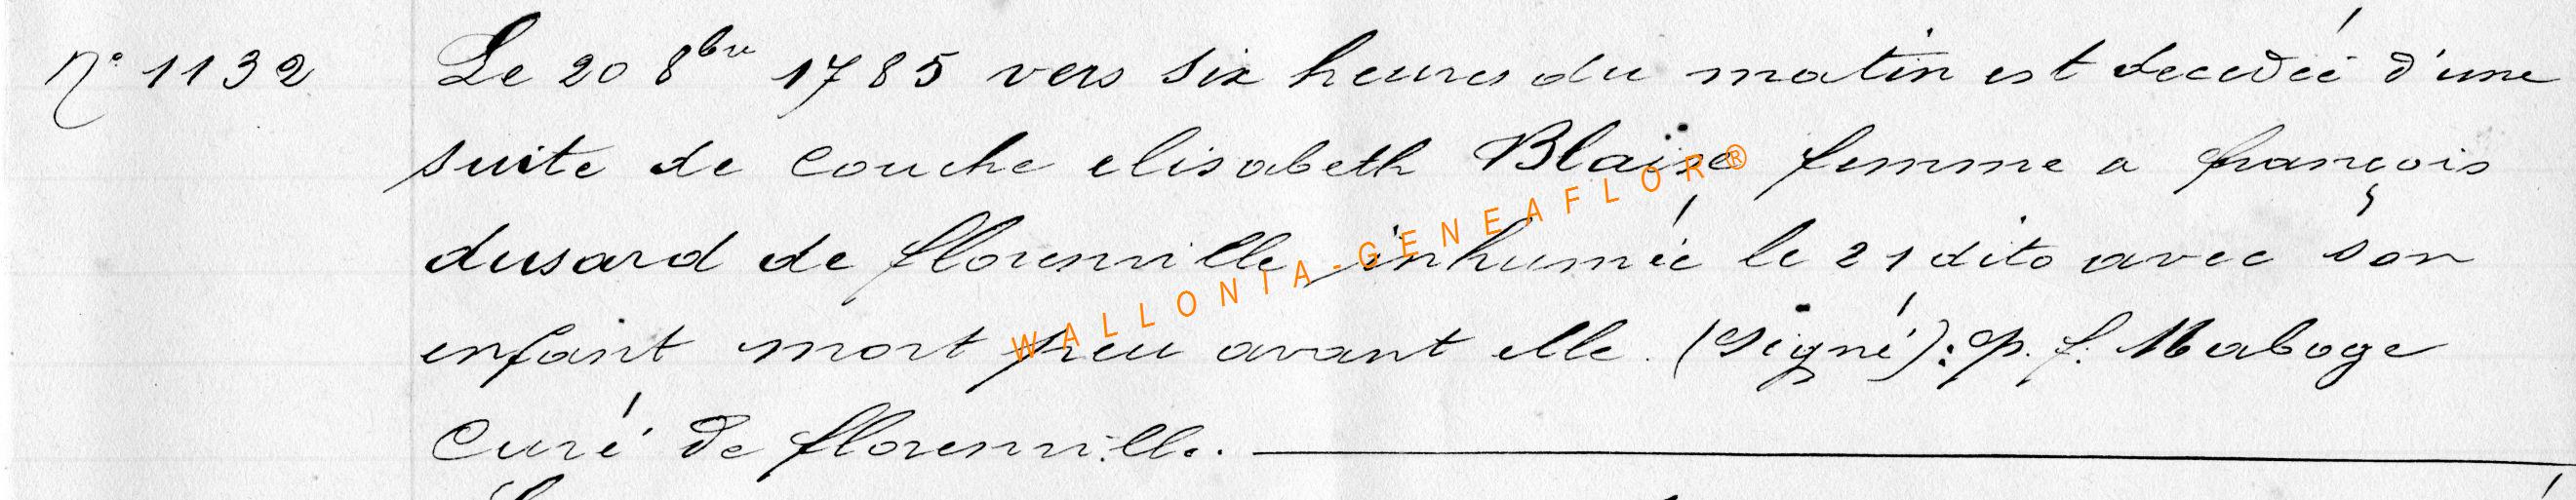 n° 1132 Le 20 8bre 1785 vers six heures du matin est decedéé d'une
suite de couche elisabeth Blaise femme a françois
dusard de florenville, inhuméé le 21 dito avec son
enfant mort peu avant elle. (signé): p. f. Maboge
Curé de florenville.
WALLONIA-GENEAFLOR®